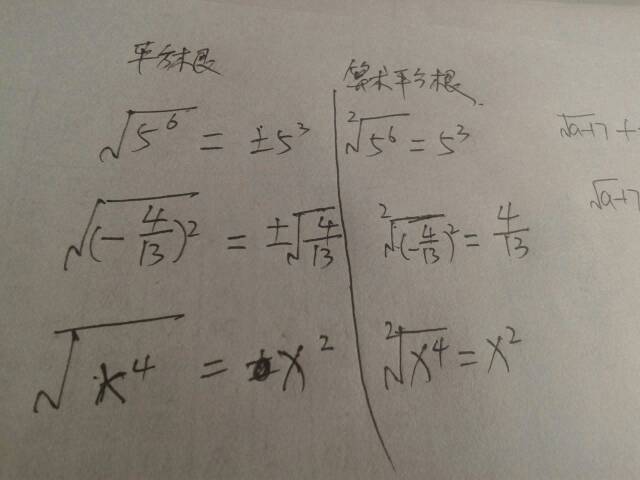 平方根
√5⁶ = ±5³
√(-4/13)² = ±√4/13
√x⁴ = ±x²
算术平方根
²√5⁶ = 5³
²√(-4/13)² = 4/13
²√x⁴ = x²
√a+7 +
√a+7